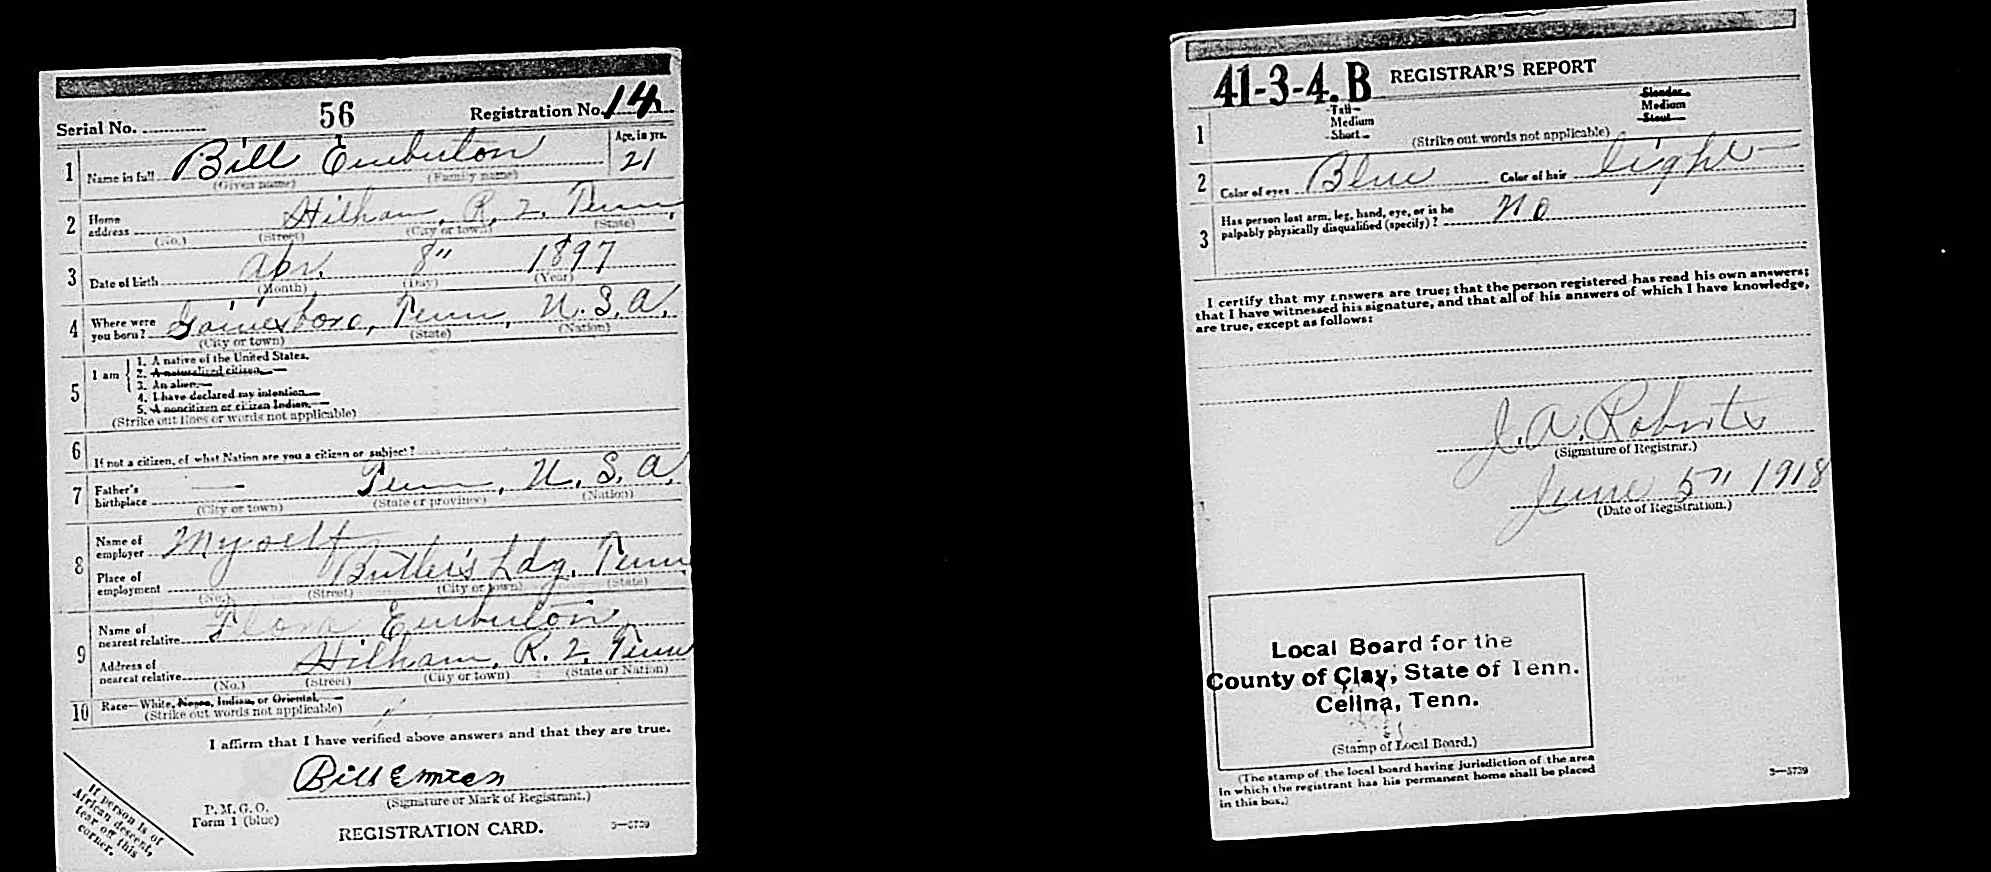 Serial No. 56 Registration No. 14
1 Name in full Bill Emberton Age, in yrs. 21
(Given name) (Family name)
2 Home address Hilham, R. 2. Tenn.
(No.) (Street) (City or town) (State)
3 Date of birth Apr. 8" 1897
(Month) (Day) (Year)
4 Where were you born? Gainesboro, Tenn, U. S. A.
(City or town) (State) (Nation)
5 I am
1. A native of the United States.
2. A naturalized citizen.
3. An alien.
4. I have declared my intention.
5. A noncitizen or citizen Indian.
(Strike out lines or words not applicable)
6 If not a citizen, of what Nation are you a citizen or subject?
7 Father's birthplace Tenn, U. S. A.
(City or town) (State or province) (Nation)
8 Name of employer Myself
Place of employment Butler's Ldg. Tenn
(No.) (Street) (City or town) (State)
9 Name of nearest relative Flora Emberton
Address of nearest relative Hilham, R. 2. Tenn
(No.) (Street) (City or town) (State or Nation)
10 Race—White, Negro, Indian, or Oriental.
(Strike out words not applicable)
I affirm that I have verified above answers and that they are true.
Bill
(Signature or Mark of Registrant.)
P. M. G. O.
Form 1 (blue)
REGISTRATION CARD.
If person is of
African descent,
tear off this
corner.
41-3-4. B REGISTRAR'S REPORT
1 Tall Slender
Medium Medium
Short Stout
(Strike out words not applicable)
2 Color of eyes Blue Color of hair light
3 Has person lost arm, leg, hand, eye, or is he
palpably physically disqualified (specify)? No
I certify that my answers are true; that the person registered has read his own answers;
that I have witnessed his signature, and that all of his answers of which I have knowledge,
are true, except as follows:
J. A. Roberts
(Signature of Registrar.)
June 5" 1918
(Date of Registration.)
Local Board for the
County of Clay, State of Tenn.
Celina, Tenn.
(Stamp of Local Board.)
(The stamp of the local board having jurisdiction of the area
in which the registrant has his permanent home shall be placed
in this box.)